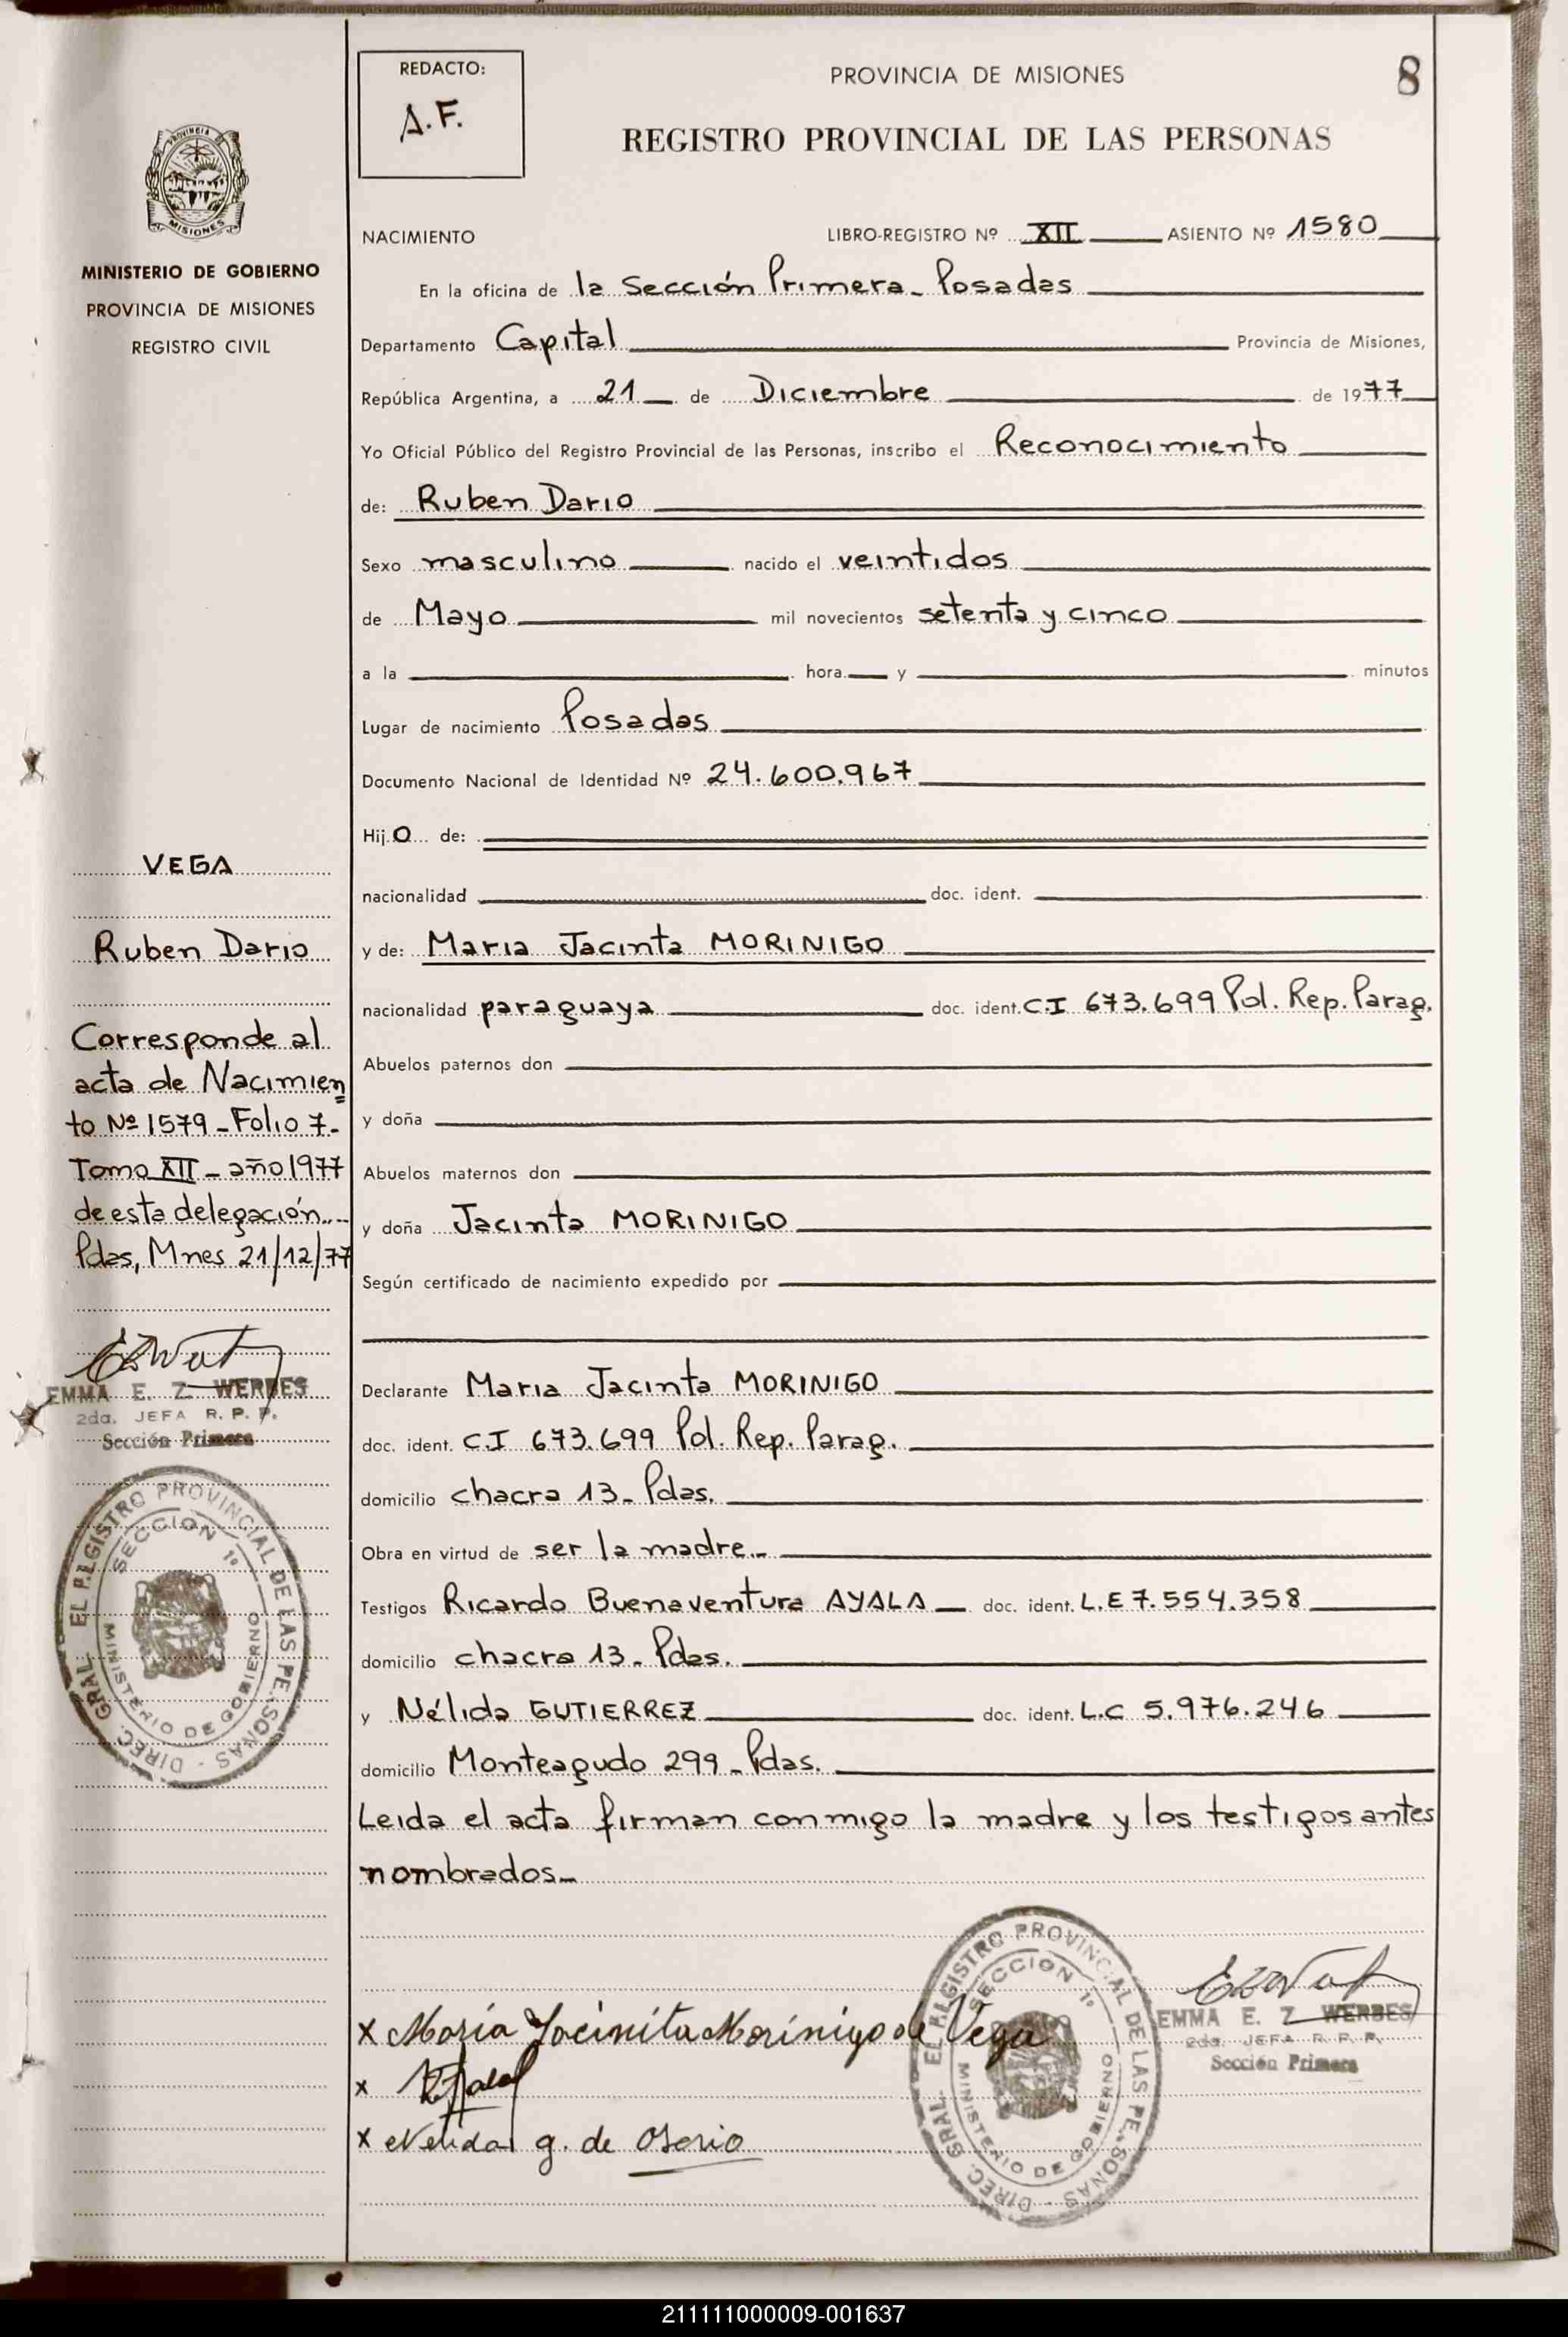 REDACTO:
A.F.
PROVINCIA DE MISIONES
8
REGISTRO PROVINCIAL DE LAS PERSONAS
PROVINCIA
MISIONES
MINISTERIO DE GOBIERNO
PROVINCIA DE MISIONES
REGISTRO CIVIL
NACIMIENTO LIBRO-REGISTRO Nº XII ASIENTO Nº 1580
En la oficina de la Sección Primera - Posadas
Departamento Capital Provincia de Misiones,
República Argentina, a 21 de Diciembre de 1977
Yo Oficial Público del Registro Provincial de las Personas, inscribo el Reconocimiento
de: Ruben Dario
Sexo masculino nacido el veintidos
de Mayo mil novecientos setenta y cinco
a la hora y minutos
Lugar de nacimiento Posadas
Documento Nacional de Identidad Nº 24.600.967
Hijo de:
nacionalidad doc. ident.
y de: Maria Jacinta MORINIGO
nacionalidad paraguaya doc. ident. C.I 673.699 Pol. Rep. Parag.
Abuelos paternos don
y doña
Abuelos maternos don
y doña Jacinta MORINIGO
Según certificado de nacimiento expedido por
Declarante Maria Jacinta MORINIGO
doc. ident. C.I 673.699 Pol. Rep. Parag.
domicilio chacra 13 - Pdas.
Obra en virtud de ser la madre.-
Testigos Ricardo Buenaventura AYALA doc. ident. L.E 7.554.358
domicilio chacra 13 - Pdas.
y Nélida GUTIERREZ doc. ident. L.C 5.976.246
domicilio Monteagudo 299 - Pdas.
Leida el acta firman conmigo la madre y los testigos antes
nombrados -
x Maria Jacinita Morinigo de Vega
x
x Nelida g. de Osorio
EMMA E. Z. WERBES
2da. JEFA R. P. P.
Sección Primera
DIREC. GRAL. EL REGISTRO PROVINCIAL DE LAS PERSONAS -
SECCION 1º
MINISTERIO DE GOBIERNO
VEGA
Ruben Dario
Corresponde al
acta de Nacimien
to Nº 1579 - Folio 7 -
Tomo XII - año 1977
de esta delegación.--
Pdas, Mnes 21/12/77
EMMA E. Z. WERBES
2da. JEFA R. P. P.
Sección Primera
DIREC. GRAL. EL REGISTRO PROVINCIAL DE LAS PERSONAS -
SECCION 1º
MINISTERIO DE GOBIERNO
211111000009-001637